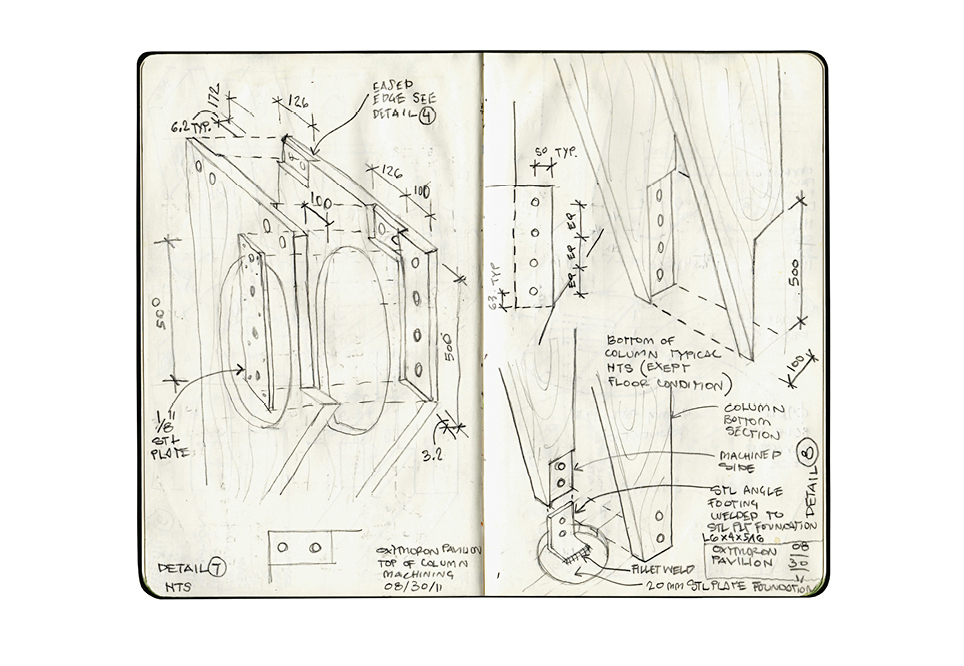 172
6.2 TYP.
126
EASED
EDGE SEE
DETAIL 4
126
100
100
500
500
1/8"
STL
PLATE
3.2
DETAIL 7
NTS
OXYMORON PAVILION
TOP OF COLUMN
MACHINING
08/30/11
50 TYP.
EQ
EQ
EQ
63 TYP
500
100
BOTTOM OF
COLUMN TYPICAL
NTS (EXEPT
FLOOR CONDITION)
COLUMN
BOTTOM
SECTION
MACHINED
SIDE
STL ANGLE
FOOTING
WELDED TO
STL PLT FOUNDATION
L6x4x5/16
FILLET WELD
20 MM STL PLATE FOUNDATION
DETAIL 8
OXYMORON
PAVILION
08
30
11